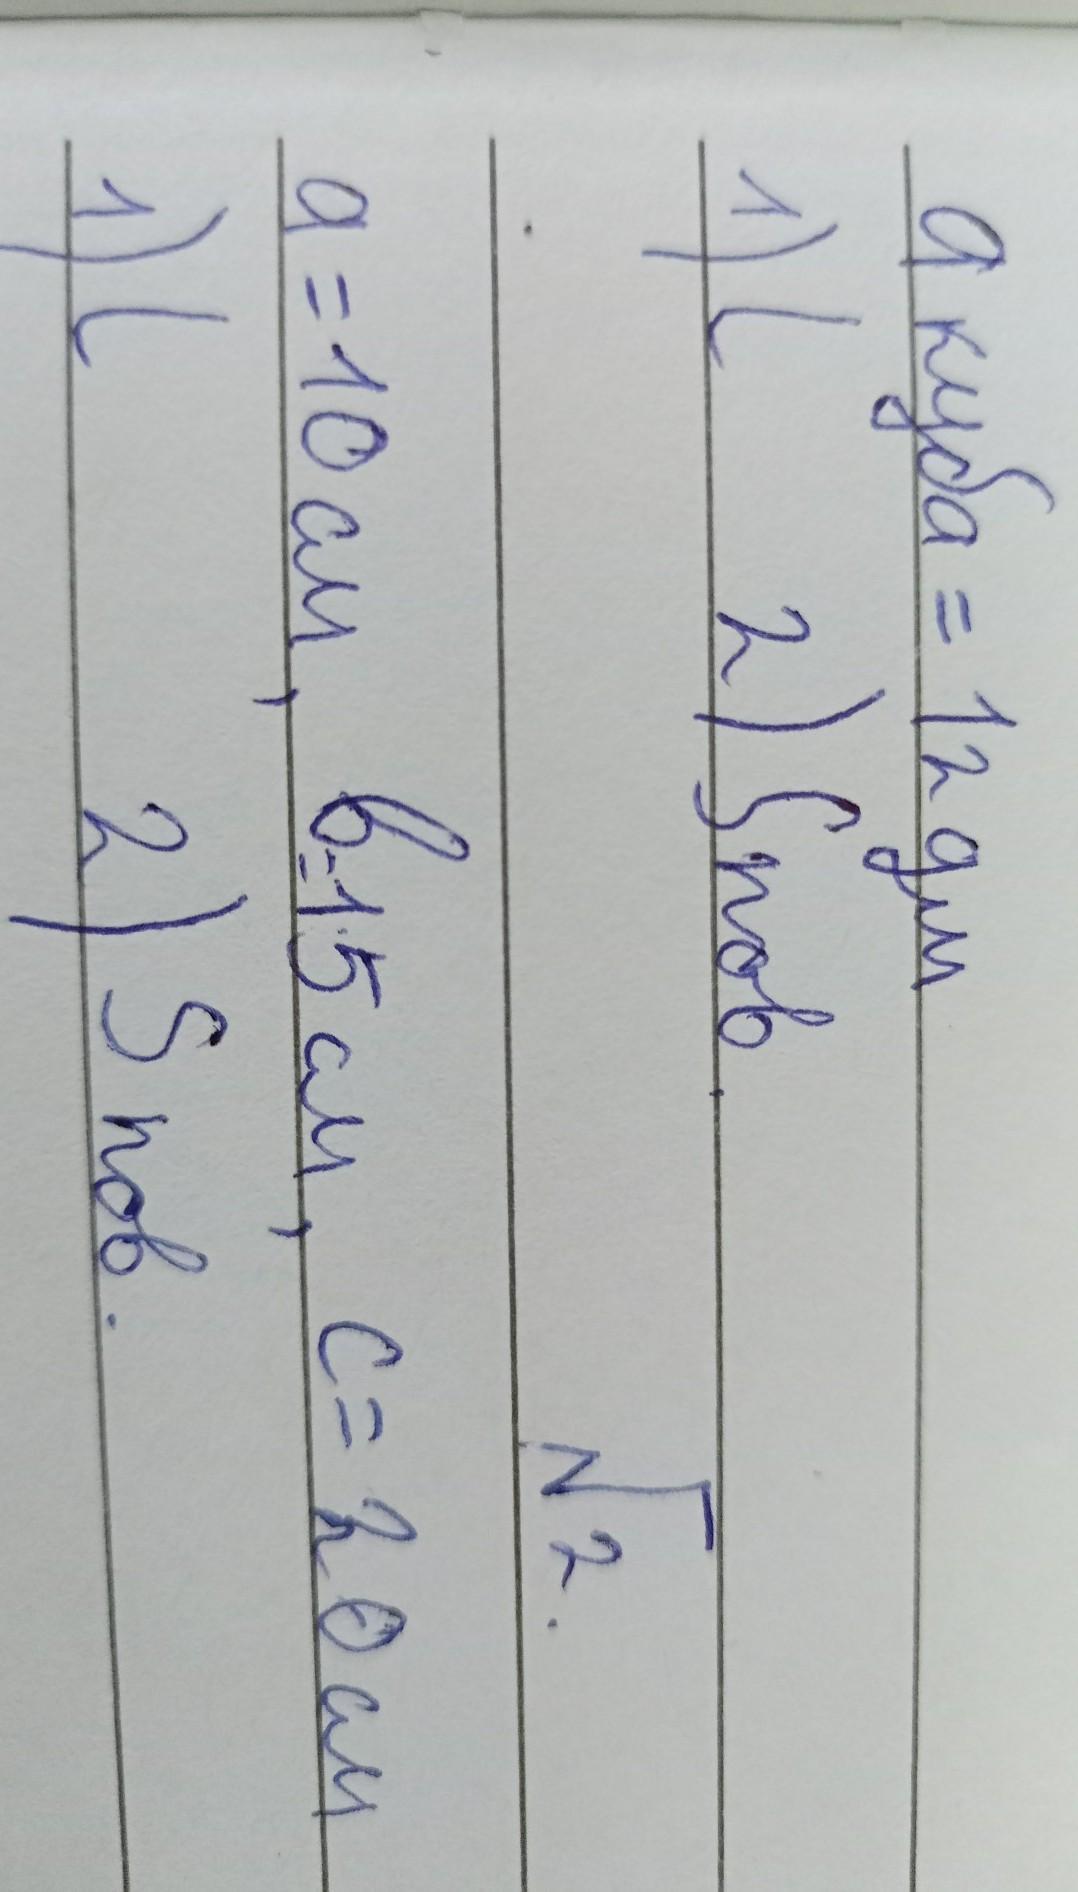 a куба = 12 дм
1) L 2) S пов.
№ 2.
a = 10 см, b = 15 см, c = 20 см
1) L 2) S пов.